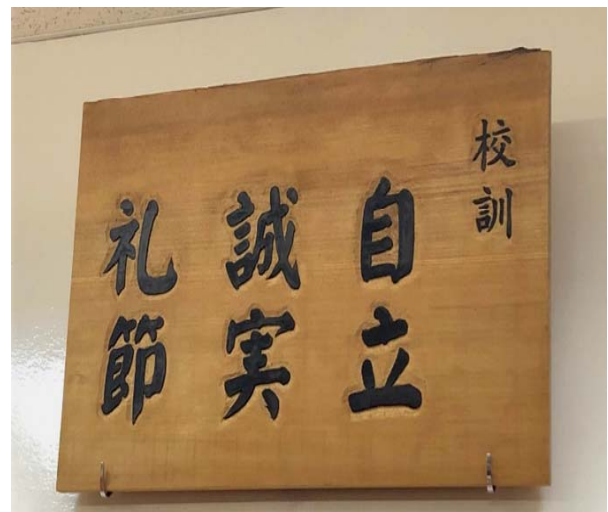 校訓
自立
誠実
礼節